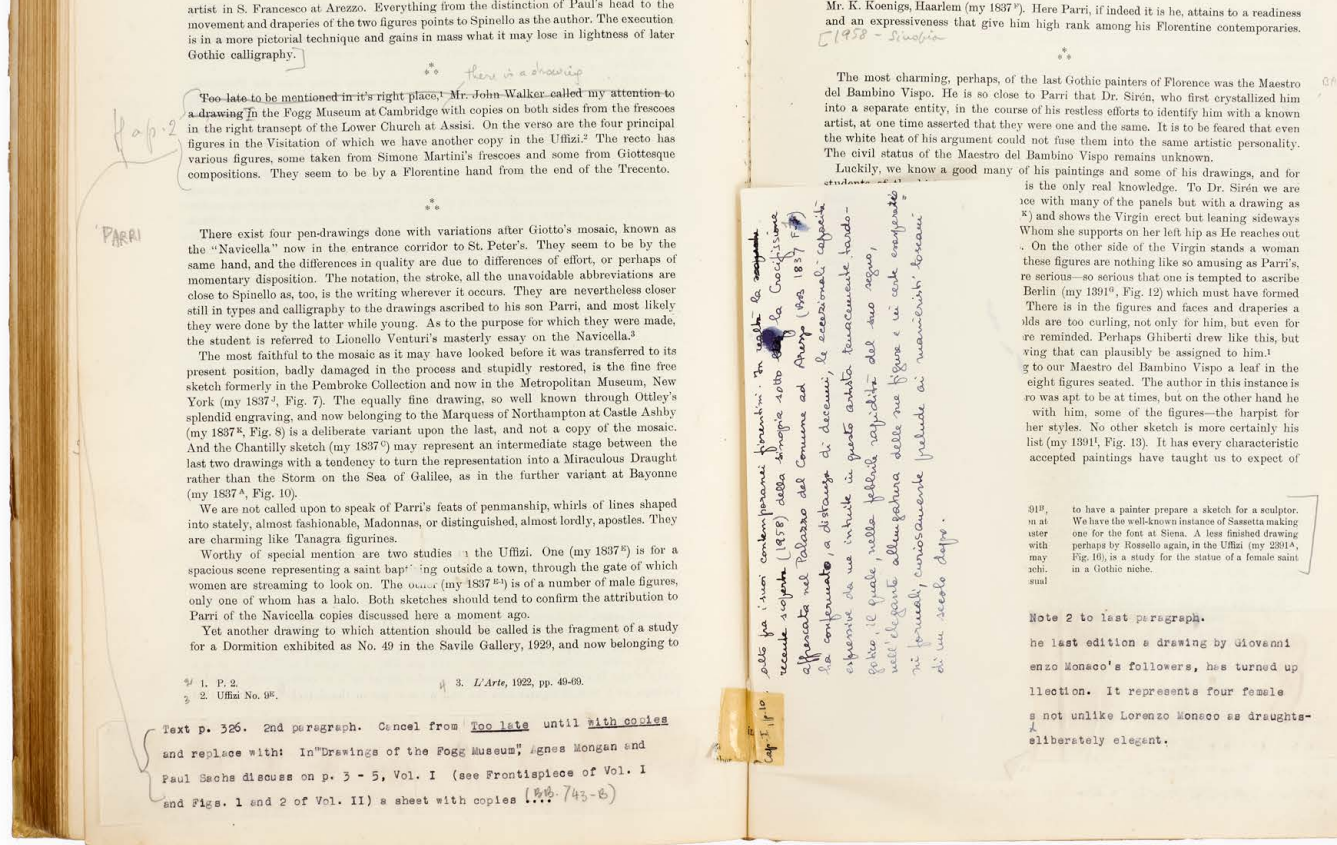 artist in S. Francesco at Arezzo. Everything from the distinction of Paul's head to the
movement and draperies of the two figures points to Spinello as the author. The execution
is in a more pictorial technique and gains in mass what it may lose in lightness of later
Gothic calligraphy.]
there is a drawing
Too late to be mentioned in it's right place,¹ Mr. John Walker called my attention to
a drawing In the Fogg Museum at Cambridge with copies on both sides from the frescoes
in the right transept of the Lower Church at Assisi. On the verso are the four principal
figures in the Visitation of which we have another copy in the Uffizi.² The recto has
various figures, some taken from Simone Martini's frescoes and some from Giottesque
compositions. They seem to be by a Florentine hand from the end of the Trecento.
PARRI
There exist four pen-drawings done with variations after Giotto's mosaic, known as
the "Navicella" now in the entrance corridor to St. Peter's. They seem to be by the
same hand, and the differences in quality are due to differences of effort, or perhaps of
momentary disposition. The notation, the stroke, all the unavoidable abbreviations are
close to Spinello as, too, is the writing wherever it occurs. They are nevertheless closer
still in types and calligraphy to the drawings ascribed to his son Parri, and most likely
they were done by the latter while young. As to the purpose for which they were made,
the student is referred to Lionello Venturi's masterly essay on the Navicella.³
The most faithful to the mosaic as it may have looked before it was transferred to its
present position, badly damaged in the process and stupidly restored, is the fine free
sketch formerly in the Pembroke Collection and now in the Metropolitan Museum, New
York (my 1837ᴶ, Fig. 7). The equally fine drawing, so well known through Ottley's
splendid engraving, and now belonging to the Marquess of Northampton at Castle Ashby
(my 1837ᴷ, Fig. 8) is a deliberate variant upon the last, and not a copy of the mosaic.
And the Chantilly sketch (my 1837ᶜ) may represent an intermediate stage between the
last two drawings with a tendency to turn the representation into a Miraculous Draught
rather than the Storm on the Sea of Galilee, as in the further variant at Bayonne
(my 1837ᴬ, Fig. 10).
We are not called upon to speak of Parri's feats of penmanship, whirls of lines shaped
into stately, almost fashionable, Madonnas, or distinguished, almost lordly, apostles. They
are charming like Tanagra figurines.
Worthy of special mention are two studies the Uffizi. One (my 1837ᴱ) is for a
spacious scene representing a saint bap ing outside a town, through the gate of which
women are streaming to look on. The (my 1837ᴱ⁻¹) is of a number of male figures,
only one of whom has a halo. Both sketches should tend to confirm the attribution to
Parri of the Navicella copies discussed here a moment ago.
Yet another drawing to which attention should be called is the fragment of a study
for a Dormition exhibited as No. 49 in the Savile Gallery, 1929, and now belonging to
1. P. 2.
2. Uffizi No. 9ᴱ.
3. L'Arte, 1922, pp. 49-69.
Text p. 326. 2nd paragraph. Cancel from Too late until with copies
and replace with: In "Drawings of the Fogg Museum", Agnes Mongan and
Paul Sachs discuss on p. 3 - 5, Vol. I (see Frontispiece of Vol. I
and Figs. 1 and 2 of Vol. II) a sheet with copies .... (BB. 743-B)
Mr. K. Koenigs, Haarlem (my 1837ᶠ). Here Parri, if indeed it is he, attains to a readiness
and an expressiveness that give him high rank among his Florentine contemporaries.
[1958 - Sinopia
The most charming, perhaps, of the last Gothic painters of Florence was the Maestro
del Bambino Vispo. He is so close to Parri that Dr. Sirén, who first crystallized him
into a separate entity, in the course of his restless efforts to identify him with a known
artist, at one time asserted that they were one and the same. It is to be feared that even
the white heat of his argument could not fuse them into the same artistic personality.
The civil status of the Maestro del Bambino Vispo remains unknown.
Luckily, we know a good many of his paintings and some of his drawings, and for
students of
is the only real knowledge. To Dr. Sirén we are
ce with many of the panels but with a drawing as
ᴷ) and shows the Virgin erect but leaning sideways
Whom she supports on her left hip as He reaches out
. On the other side of the Virgin stands a woman
these figures are nothing like so amusing as Parri's,
re serious—so serious that one is tempted to ascribe
Berlin (my 1391ᴳ, Fig. 12) which must have formed
There is in the figures and faces and draperies a
lds are too curling, not only for him, but even for
re reminded. Perhaps Ghiberti drew like this, but
ving that can plausibly be assigned to him.¹
g to our Maestro del Bambino Vispo a leaf in the
eight figures seated. The author in this instance is
ro was apt to be at times, but on the other hand he
with him, some of the figures—the harpist for
her styles. No other sketch is more certainly his
list (my 1391ᴵ, Fig. 13). It has every characteristic
accepted paintings have taught us to expect of
91ᴮ,
at
ster
with
may
chi.
sual
to have a painter prepare a sketch for a sculptor.
We have the well-known instance of Sassetta making
one for the font at Siena. A less finished drawing
perhaps by Rossello again, in the Uffizi (my 2391ᴬ,
Fig. 16), is a study for the statue of a female saint
in a Gothic niche.
Note 2 to last paragraph.
he last edition a drawing by Giovanni
enzo Monaco's followers, has turned up
llection. It represents four female
s not unlike Lorenzo Monaco as draughts-
eliberately elegant.
Cap. I, p. 10.
alto fra i suoi contemporanei fiorentini. In realtà la
recente scoperta (1958) della sinopia sotto la Crocifissione
affrescata nel Palazzo del Comune ad Arezzo (BB 1837 F-
ha confermato, a distanza di decenni, le eccezionali capacità
espressive da me intuite in questo artista tenacemente tardo-
gotico, il quale, nella febbrile rapidità del suo segno,
nell'elegante allungatura delle sue figure e in certe esasperazio
ni formali, curiosamente prelude ai manieristi toscani
di un secolo dopo.